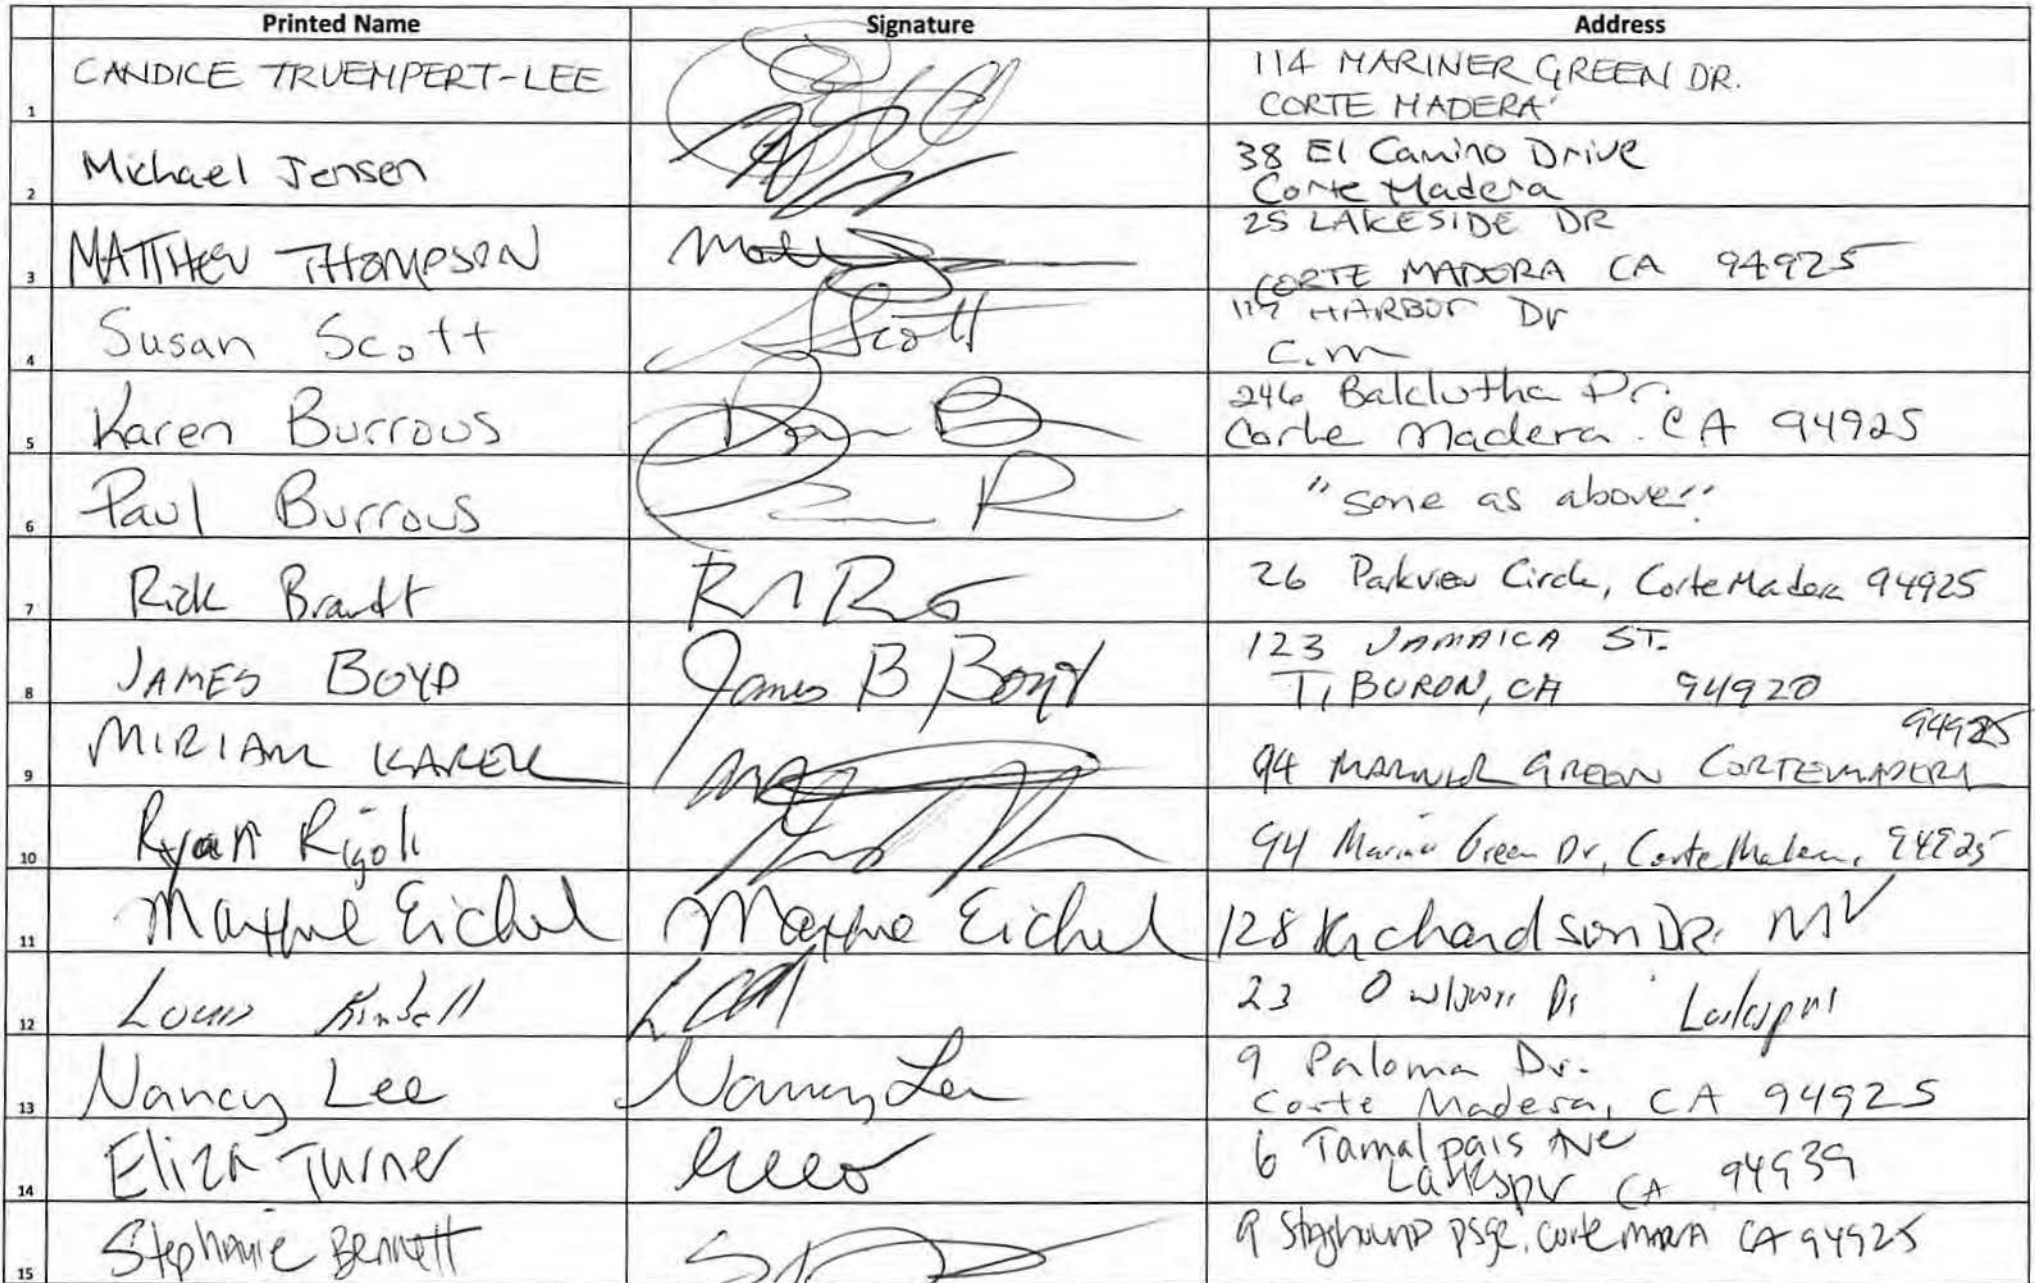 Printed Name Signature Address
CANDICE TRUEMPERT-LEE
114 MARINER GREEN DR.
CORTE MADERA
1
Michael Jensen
38 El Camino Drive
Corte Madera
2
MATTHEW THOMPSON
25 LAKESIDE DR
CORTE MADERA CA 94925
3
Susan Scott
Scott
HARBOR Dr
C.M
4
Karen Burrous
246 Balclutha Dr.
Corte Madera CA 94925
5
Paul Burrous
"same as above"
6
Rick Brandt
26 Parkview Circle, Corte Madera 94925
7
JAMES BOYD
James B Boyd
123 JAMAICA ST.
TIBURON, CA 94920
8
MIRIAM KAREL
94925
94 MARINER GREEN CORTE MADERA
9
Ryan Rigoli
94 Mariner Green Dr, Corte Madera, 94925
10
Maxine Eichel
Maxine Eichel
128 Richardson Dr. MV
11
Louis
23 Dr Larkspur
12
Nancy Lee
Nancy Lee
9 Paloma Dr.
Corte Madera, CA 94925
13
Eliza Turner
6 Tamalpais Ave
Larkspur CA 94939
14
Stephanie Bennett
9 Staghound psge, Corte Madera CA 94925
15